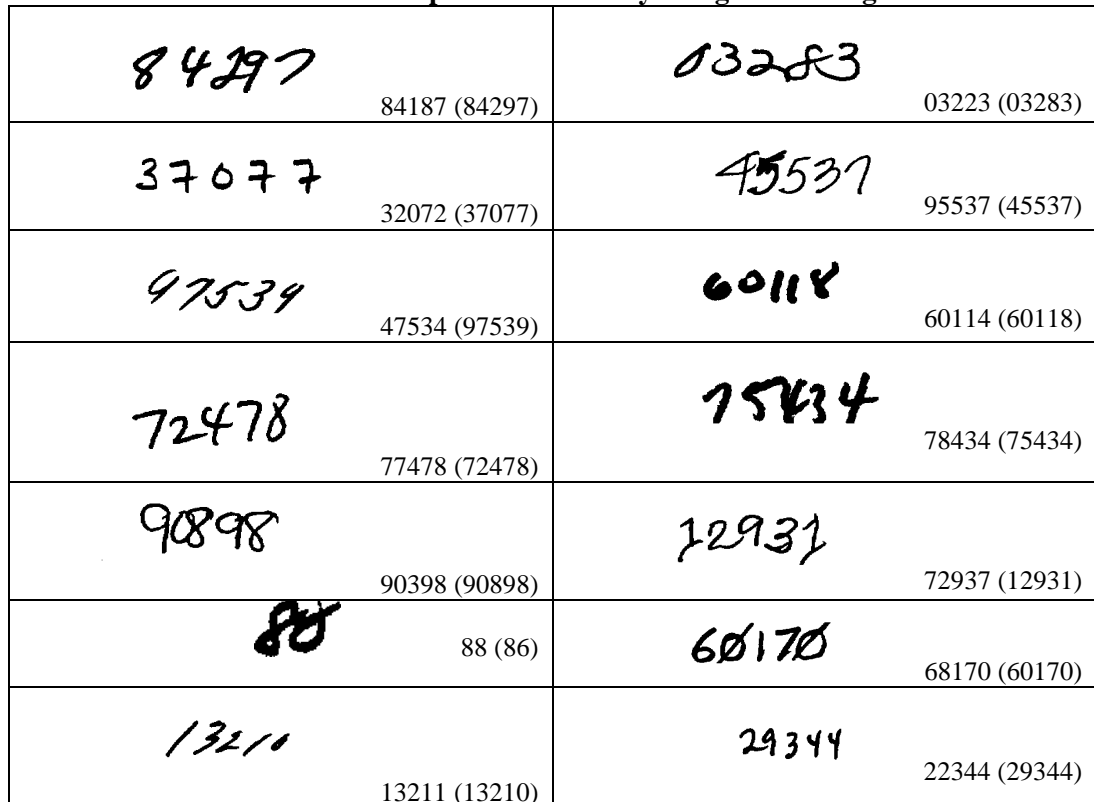 84297
84187 (84297)
03283
03223 (03283)
37077
32072 (37077)
45537
95537 (45537)
97539
47534 (97539)
60118
60114 (60118)
72478
77478 (72478)
75434
78434 (75434)
90898
90398 (90898)
12931
72937 (12931)
86
88 (86)
60170
68170 (60170)
13210
13211 (13210)
29344
22344 (29344)